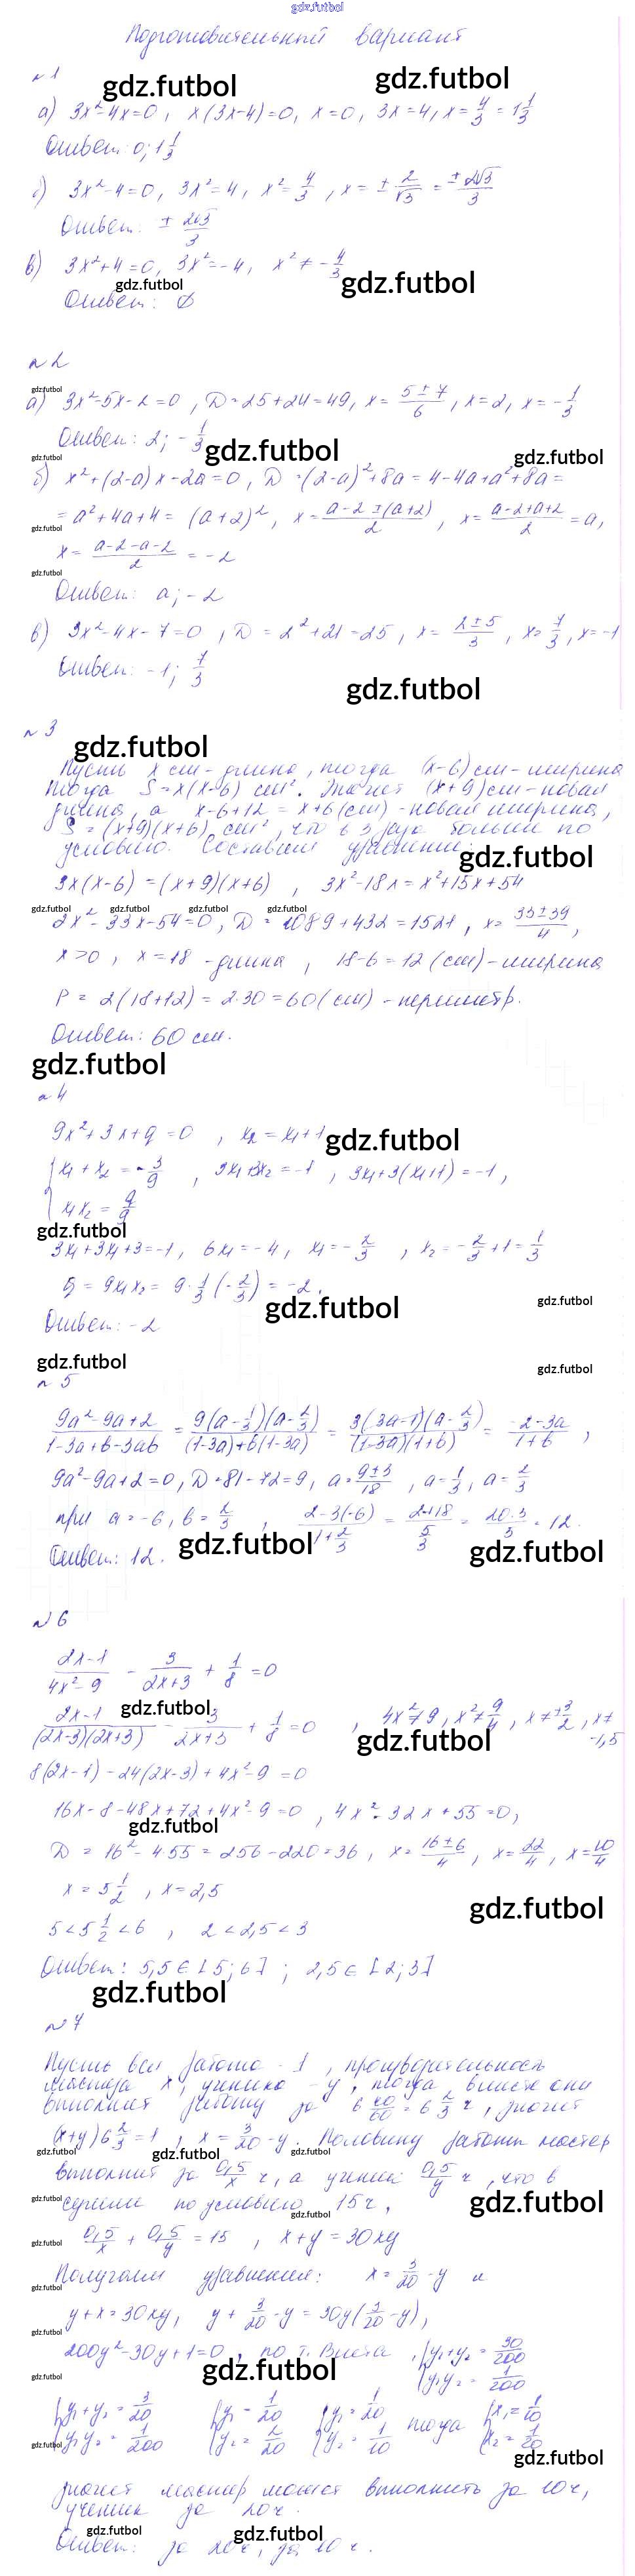 gdz.futbol
Подготовительный вариант
№1
gdz.futbol gdz.futbol
а) 3x²-4x=0, x(3x-4)=0, x=0, 3x=4, x=4/3=1 1/3
Ответ: 0; 1 1/3
б) 3x²-4=0, 3x²=4, x²=4/3, x=±2/√3=±2√3/3
Ответ: ±2√3/3
в) 3x²+4=0, 3x²=-4, x²≠-4/3
gdz.futbol gdz.futbol
Ответ: ∅
№2
gdz.futbol
а) 3x²-5x-2=0, D=25+24=49, x=(5±7)/6, x=2, x=-1/3
Ответ: 2; -1/3
gdz.futbol gdz.futbol gdz.futbol
б) x²+(2-a)x-2a=0, D=(2-a)²+8a=4-4a+a²+8a=
=a²+4a+4=(a+2)², x=(a-2±(a+2))/2, x=(a-2+a+2)/2=a,
gdz.futbol
x=(a-2-a-2)/2=-2
gdz.futbol
Ответ: a; -2
в) 3x²-4x-7=0, D=2²+21=25, x=(2±5)/3, x=7/3, x=-1
Ответ: -1; 7/3
gdz.futbol
№3
gdz.futbol
Пусть x см - длина, тогда (x-6) см - ширина
Тогда S=x(x-6) см². Значит (x+9) см - новая
длина, а x-6+12=x+6 (см) - новая ширина,
S=(x+9)(x+6) см², что в 3 раза больше по
условию. Составим уравнение:
gdz.futbol
3x(x-6)=(x+9)(x+6), 3x²-18x=x²+15x+54
gdz.futbol gdz.futbol gdz.futbol gdz.futbol
2x²-33x-54=0, D=1089+432=1521, x=(33±39)/4,
x>0, x=18 - длина, 18-6=12 (см) - ширина
P=2(18+12)=2·30=60 (см) - периметр.
Ответ: 60 см.
gdz.futbol
№4
9x²+3x+q=0, x₂=x₁+1
gdz.futbol
{x₁+x₂=-3/9, 3x₁+3x₂=-1, 3x₁+3(x₁+1)=-1,
x₁x₂=q/9
gdz.futbol
3x₁+3x₁+3=-1, 6x₁=-4, x₁=-2/3, x₂=-2/3+1=1/3
q=9x₁x₂=9·1/3(-2/3)=-2.
gdz.futbol gdz.futbol
Ответ: -2
gdz.futbol gdz.futbol
№5
(9a²-9a+2)/(1-3a+b-3ab)=9(a-1/3)(a-2/3)/((1-3a)+b(1-3a))=3(3a-1)(a-2/3)/((1-3a)(1+b))=(2-3a)/(1+b),
9a²-9a+2=0, D=81-72=9, a=(9±3)/18, a=1/3, a=2/3
при a=-6, b=2/3, (2-3(-6))/(1+2/3)=(2+18)/(5/3)=20·3/5=12.
gdz.futbol gdz.futbol
Ответ: 12.
№6
(2x-1)/(4x²-9) - 3/(2x+3) + 1/8=0
gdz.futbol
(2x-1)/((2x-3)(2x+3)) - 3/(2x+3) + 1/8=0, 4x²≠9, x²≠9/4, x≠±3/2, x≠
-1,5
gdz.futbol
8(2x-1)-24(2x-3)+4x²-9=0
16x-8-48x+72+4x²-9=0, 4x²-32x+55=0,
gdz.futbol
D=16²-4·55=256-220=36, x=(16±6)/4, x=22/4, x=10/4
x=5 1/2, x=2,5
gdz.futbol
5<5 1/2<6, 2<2,5<3
Ответ: 5,5∈[5;6]; 2,5∈[2;3]
gdz.futbol
№7
Пусть вся работа - 1, производительность
мастера x, ученика - y, тогда вместе они
выполнят работу за 6 40/60=6 2/3 ч, значит
(x+y)6 2/3=1, x=3/20-y. Половину работы мастер
gdz.futbol gdz.futbol gdz.futbol
выполнит за 0,5/x ч, а ученик 0,5/y ч, что в
gdz.futbol gdz.futbol gdz.futbol
сумме по условию 15 ч,
gdz.futbol
0,5/x+0,5/y=15, x+y=30xy
Получаем уравнения: x=3/20-y и
gdz.futbol
y+x=30xy, y+3/20-y=30y(3/20-y),
gdz.futbol
200y²-30y+1=0, по т. Виета, {y₁+y₂=30/200
y₁y₂=1/200
gdz.futbol gdz.futbol
{y₁+y₂=3/20 {y₁=1/20 {y₁=1/20 тогда {x₁=1/10
y₁y₂=1/200 y₂=2/20 y₂=1/10 x₂=1/20
gdz.futbol gdz.futbol
значит мастер может выполнить за 10 ч,
ученик за 20 ч.
gdz.futbol gdz.futbol
Ответ: за 20 ч, за 10 ч.